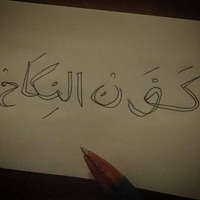 كَوْنْ النِكَاح